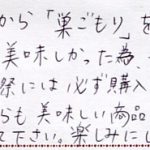 から「巣ごもり」を
美味しかった為、
祭には必ず購入
らも美味しい商品
て下さい。楽しみにし